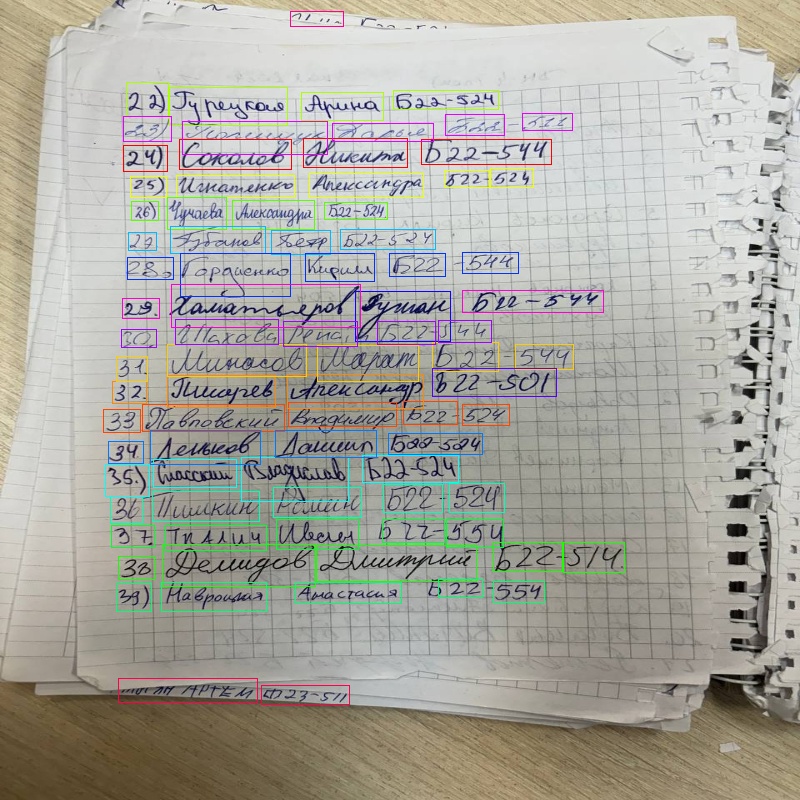 22) Гурецкая Арина Б22-524
23)
24) Соколов Никита Б22-544
25) Игнатенко Александра Б22-524
26) Чучаева Александра Б22-524
27. Губанов Петр Б22-524
28. Гордиенко Кирилл Б22-544
29. Хаматьяров Рузман Б22-544
30. Шахова Б22-544
31. Минасов Марат Б22-544
32. Писарев Александр Б22-501
33 Павловский Владимир Б22-524
34 Леньков Даниил Б22-524
35.) Спасский Владислав Б22-524
36 Пишкин Роман Б22-524
37. Ткалич Б22-554
38 Демидов Дмитрий Б22-514.
39) Навроцкая Анастасия Б22-554
АРТЕМ 23-511